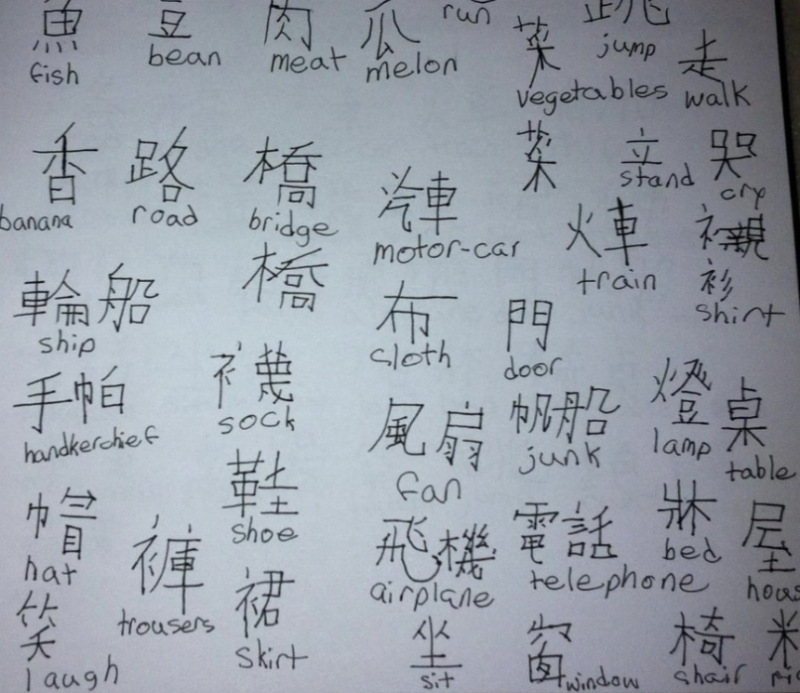 魚 豆 肉 瓜 run 菜 跳
fish bean meat melon vegetables jump
走
walk
香 路 橋 汽車 菜 立 哭
banana road bridge motor-car stand cry
火車
train
襯衫
shirt
輪船 橋 布 門
ship cloth door
手帕 襪 風扇 帆船 燈 桌
handkerchief sock fan junk lamp table
帽 鞋 飛機 電話 牀 屋
hat shoe airplane telephone bed hous
褲 裙
trousers skirt
笑 坐 窗 椅 米
laugh sit window shair